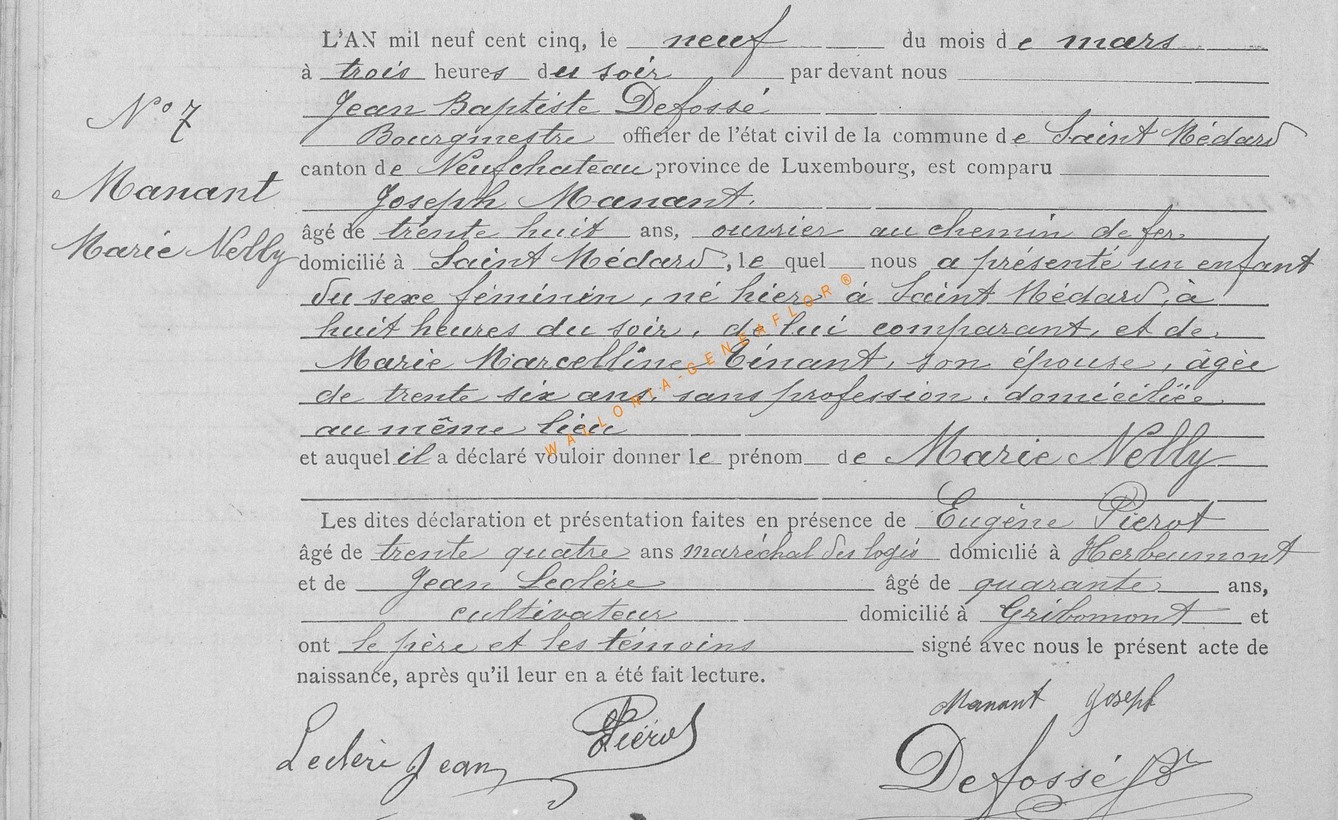 L'AN mil neuf cent cinq, le neuf du mois de mars
à trois heures du soir par devant nous
Jean Baptiste Defossé
Bourgmestre officier de l'état civil de la commune de Saint Médard
canton de Neufchateau province de Luxembourg, est comparu
Joseph Manant.
âgé de trente huit ans, ouvrier au chemin de fer
domicilié à Saint Médard, le quel nous a présenté un enfant
du sexe féminin, né hier à Saint Médard, à
huit heures du soir, de lui comparant, et de
Marie Marcelline Tinant, son épouse, âgée
de trente six ans, sans profession, domiciliée
au même lieu
et auquel il a déclaré vouloir donner le prénom de Marie Nelly
Les dites déclaration et présentation faites en présence de Eugène Pierot
âgé de trente quatre ans maréchal des logis domicilié à Herbeumont
et de Jean Leclère âgé de quarante ans,
cultivateur domicilié à Gribomont et
ont le père et les témoins signé avec nous le présent acte de
naissance, après qu'il leur en a été fait lecture.
N° 7
Manant
Marie Nelly
Manant Joseph
Leclère Jean
Piérot
Defossé JB
WALLONIA-GENEAFLOR®